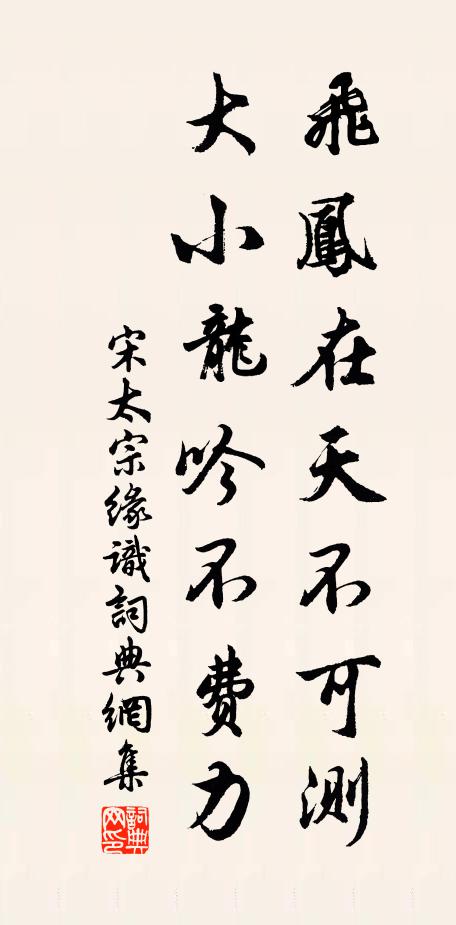 飛鳳在天不可測
大小龍吟不費力
宋太宗緣識詞典網集
詞典網印